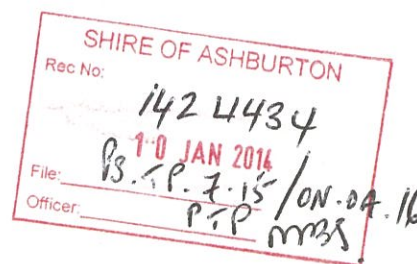 SHIRE OF ASHBURTON
Rec No:
1424434
10 JAN 2014
File: PS.TP.7.15/ON.DA.16
Officer: PTP